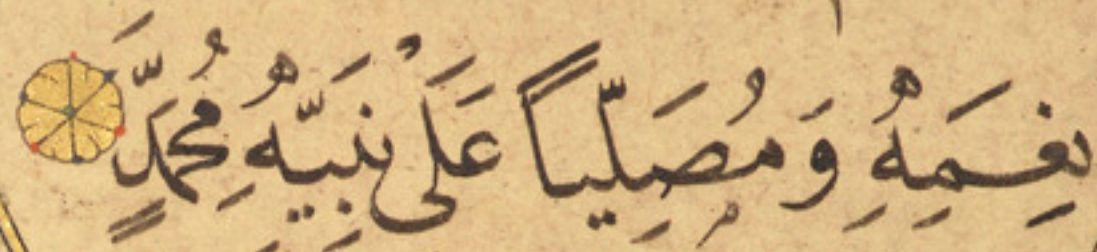 نِعَمِهِ وَمُصَلِّياً عَلَى نَبِيِّهِ مُحَمَّدٍ